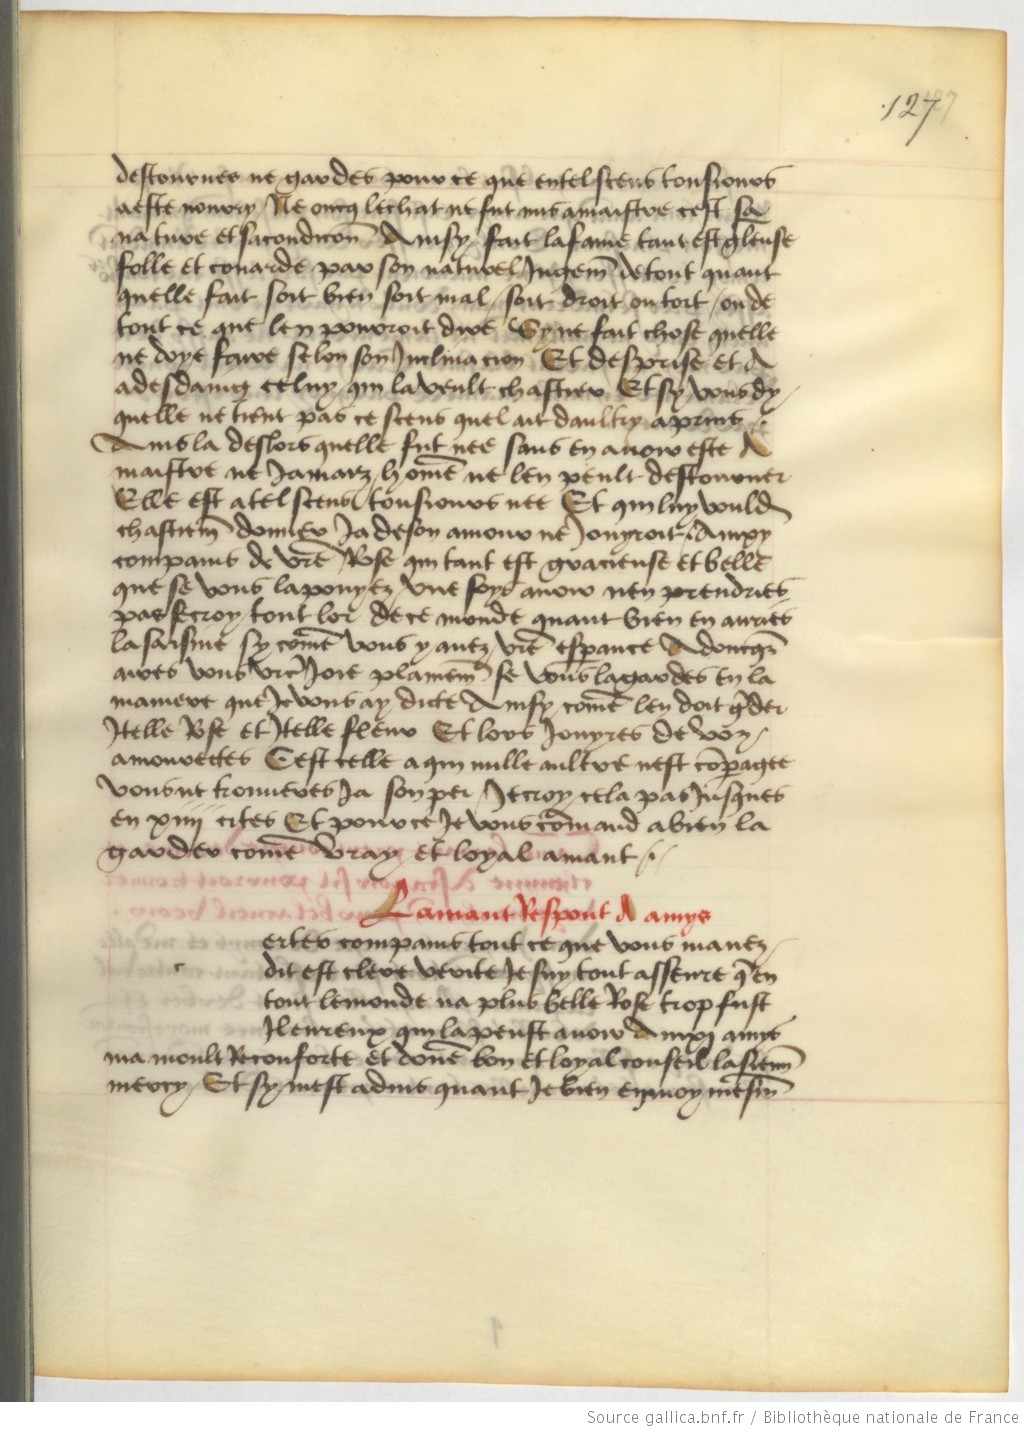 .127
destournes ne gardes pour ce que entel scens tousiours
aeste nourry / Ne oncq lechat ne fut mis amaistre cest sa
nature et sa condicon Ainsy fait la fame tant est gleuse
folle et couarde par son naturel Jugem̄ de tout quant
quelle fait soit bien soit mal / soit droit ou tort / ou de
tout ce que len pouroit dire Sy ne fait chose quelle
ne doye faire selon son Inclinacion Et desprise et A
a desdaing celuy qui la veult chastier Et sy vous dy /
quelle ne tient pas ce scens quel ait daultry aprins /.
Ains la deslors quelle fut nee sans en auoir este A
maistre ne Jamaiz home ne len peult destourner
Elle est a tel scens tousiours nee Et qui luy vould
chastiem̄ donner Ja de son amour ne Jouyroit / Ainxy
compains de vrē Rose qui tant est gracieuse et belle
que se vous la pouyez / vne foys auoir nen prendries
pas se croy / tout lor de ce monde quant bien en auries
la saisine sy comē vous y auez / vrē espance Adoncqz
aures vous vrē Joie plainem̄ se vous la gardes en la
maniere que Je vous ay dicte Ainsy comē len doit gder
Jtelle Rose et Jtelle fleur Et lors Jouyres de voz /
amourectes Cest celle a qui nulle aultre nest compagee
vous ne trouueres Ja son per / Je croy cela pas Jusques
en xiiii cites Et pour ce Je vous comand a bien la
garder comē vray et loyal amant /./
Lamant Respont A amys
ertes compains tout ce que vous manez /
c dit est clere verite Je suy tout asseure qen
tout le monde na plus belle Rose trop fust
Jleureux qui la peust auoir Ainxi amys
ma moult Reconforte et donē bon et loyal conseil la sienn̄
mercy / Et sy mest aduis quant Je bien en moy mesm̄
Source gallica.bnf.fr / Bibliothèque nationale de France